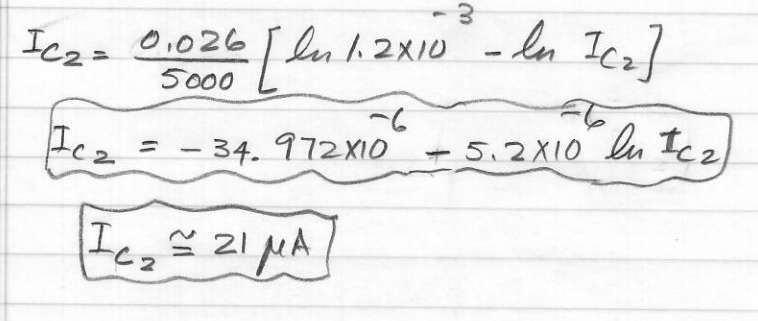 I_C2 = 0.026/5000 [ln 1.2×10^-3 - ln I_C2]
I_C2 = -34.972×10^-6 - 5.2×10^-6 ln I_C2
I_C2 ≅ 21 μA